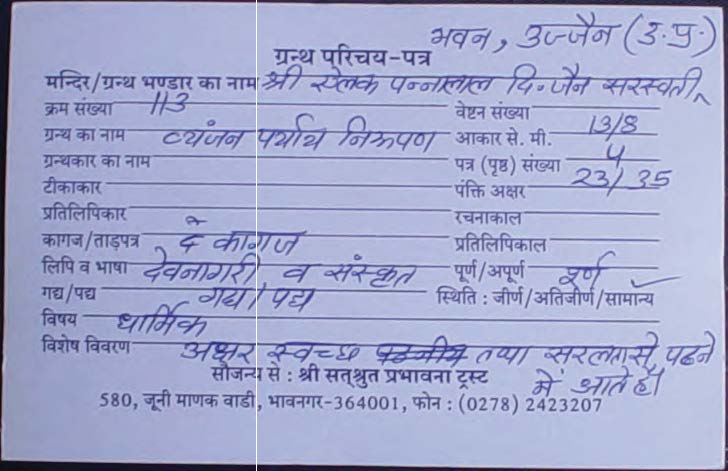 भवन, उज्जैन (उ.प्र.)
ग्रन्थ परिचय-पत्र
मन्दिर/ग्रन्थ भण्डार का नाम श्री ऐलक पन्नालाल दि. जैन सरस्वती,
क्रम संख्या 113 वेष्टन संख्या
ग्रन्थ का नाम व्यंजन पर्याय निरूपण आकार से. मी. 13/8
ग्रन्थकार का नाम पत्र (पृष्ठ) संख्या 4
टीकाकार पंक्ति अक्षर 23/35
प्रतिलिपिकार रचनाकाल
कागज/ताड़पत्र दे कागज प्रतिलिपिकाल
लिपि व भाषा देवनागरी व संस्कृत पूर्ण/अपूर्ण पूर्ण
गद्य/पद्य गद्य/पद्य स्थिति : जीर्ण/अतिजीर्ण/सामान्य ✓
विषय धार्मिक
विशेष विवरण अक्षर स्वच्छ तथा सरलता से पढने
सौजन्य से : श्री सत्श्रुत प्रभावना ट्रस्ट में आते है।
580, जूनी माणक वाडी, भावनगर-364001, फोन : (0278) 2423207